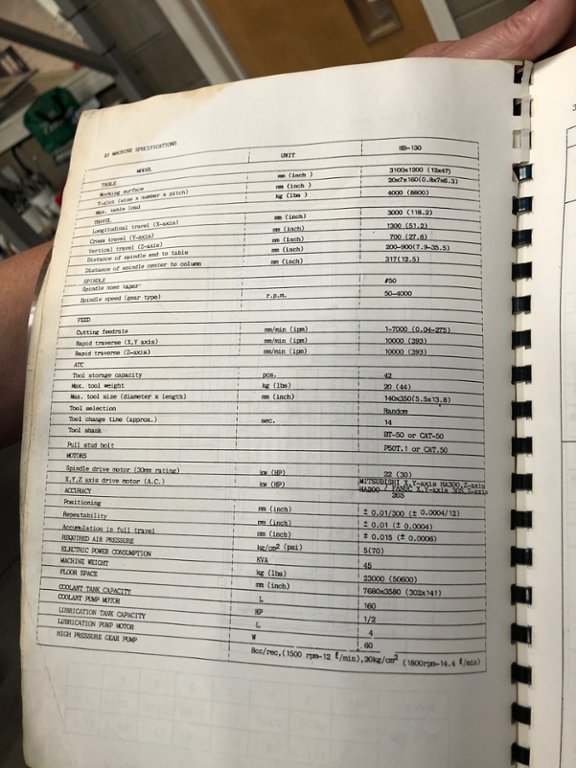 2) MACHINE SPECIFICATIONS
MODEL UNIT HB-130
TABLE
Working surface mm (inch) 3100x1200 (12x47)
T-slot (size x number x pitch) mm (inch) 20x7x160(0.8x7x6.3)
Max. table load kg (lbs) 4000 (8800)
TRAVEL
Longitudinal travel (X-axis) mm (inch) 3000 (118.2)
Cross travel (Y-axis) mm (inch) 1300 (51.2)
Vertical travel (Z-axis) mm (inch) 700 (27.6)
Distance of spindle end to table mm (inch) 200-900(7.9-35.5)
Distance of spindle center to column mm (inch) 317(12.5)
SPINDLE
Spindle nose taper #50
Spindle speed (gear type) r.p.m. 50-4000
FEED
Cutting feedrate mm/min (ipm) 1-7000 (0.04-275)
Rapid traverse (X,Y axis) mm/min (ipm) 10000 (393)
Rapid traverse (Z-axis) mm/min (ipm) 10000 (393)
ATC
Tool storage capacity pcs. 42
Max. tool weight kg (lbs) 20 (44)
Max. tool size (diameter x length) mm (inch) 140x350(5.5x13.8)
Tool selection Random
Tool change time (approx.) sec. 14
Tool shank BT-50 or CAT-50
Pull stud bolt P50T.1 or CAT.50
MOTORS
Spindle drive motor (30mm rating) kw (HP) 22 (30)
X,Y,Z axis drive motor (A.C.) kw (HP) MITSUBISHI X,Y-axis HA300,Z-axis
HA900 / FANUC X,Y-axis 30S,Z-axis
20S
ACCURACY
Positioning mm (inch) ± 0.01/300 (± 0.0004/12)
Repeatability mm (inch) ± 0.01 (± 0.0004)
Accumulation in full travel mm (inch) ± 0.015 (± 0.0006)
REQUIRED AIR PRESSURE kg/cm² (psi) 5(70)
ELECTRIC POWER CONSUMPTION KVA 45
MACHINE WEIGHT kg (lbs) 23000 (50600)
FLOOR SPACE mm (inch) 7680x3580 (302x141)
COOLANT TANK CAPACITY L 160
COOLANT PUMP MOTOR HP 1/2
LUBRICATION TANK CAPACITY L 4
LUBRICATION PUMP MOTOR W 60
HIGH PRESSURE GEAR PUMP 8cc/rec,(1500 rpm-12 ℓ/min),20kg/cm² (1800rpm-14.4 ℓ/min)